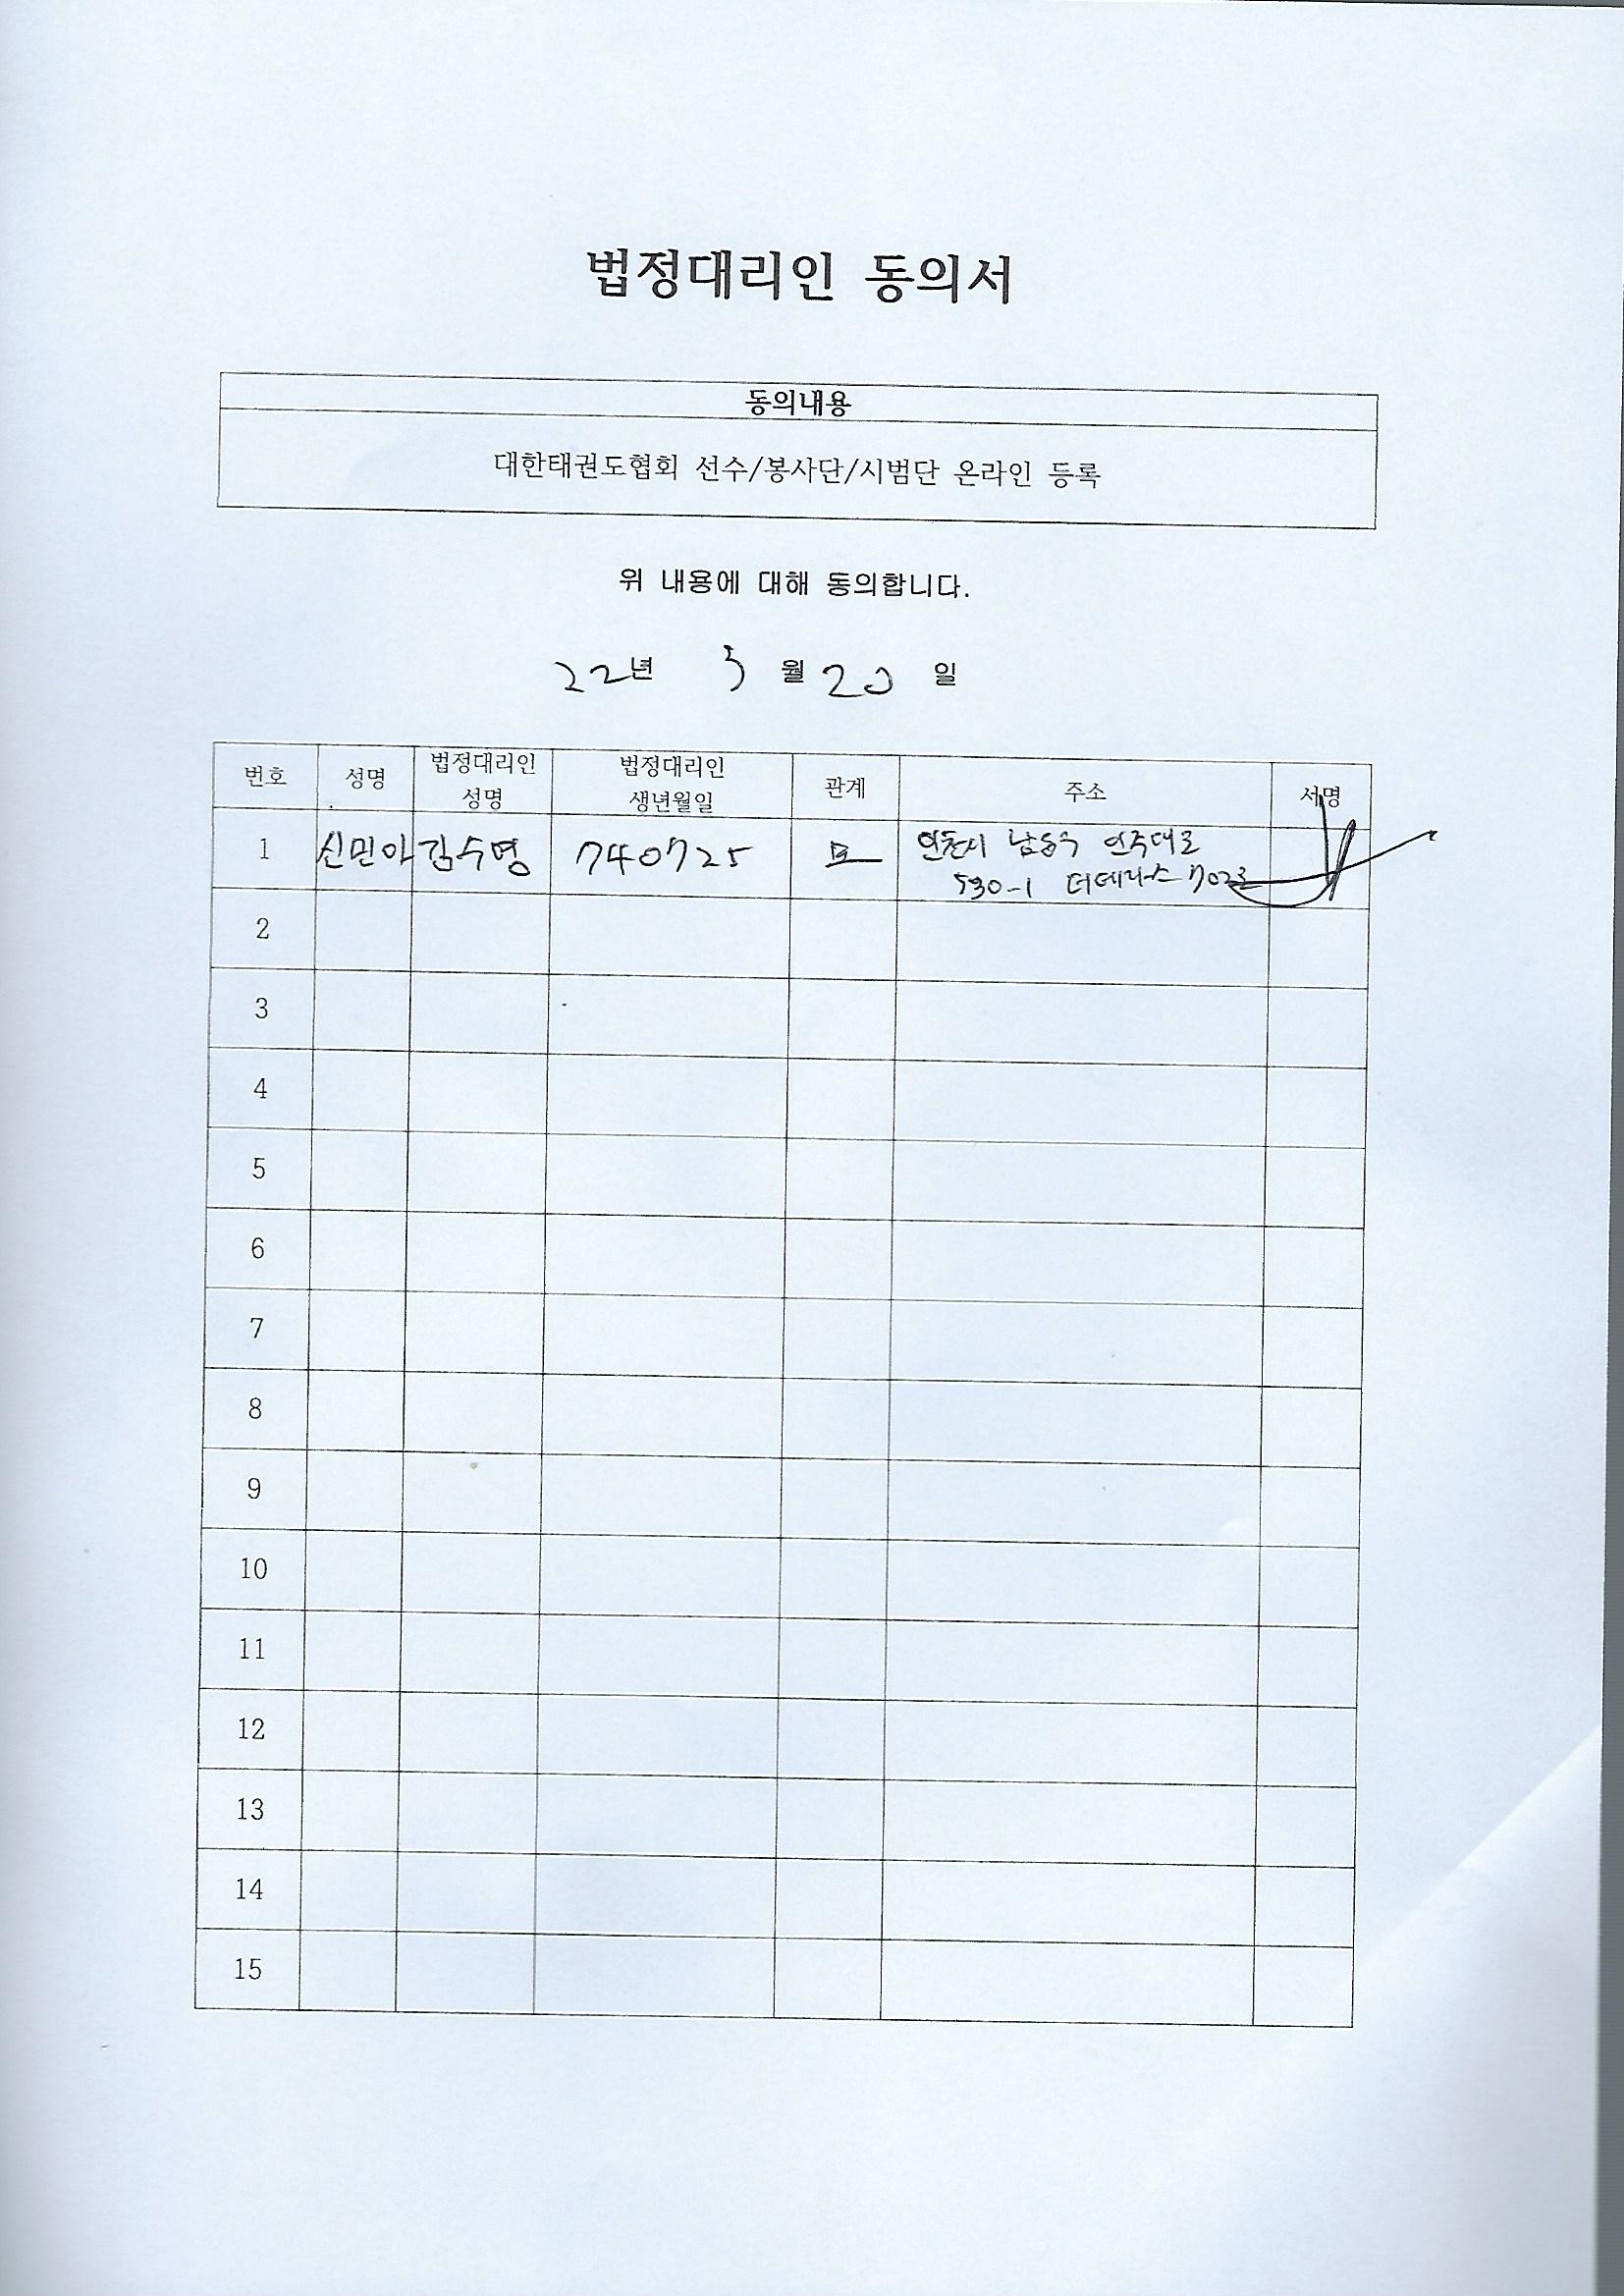 법정대리인 동의서
동의내용
대한태권도협회 선수/봉사단/시범단 온라인 등록
위 내용에 대해 동의합니다.
22년 월 20 일
번호 성명 법정대리인 성명 법정대리인 생년월일 관계 주소 서명
1 신민아 김수영 740725 모 인천시 남동구 인주대로
530-1 더테라스
2
3
4
5
6
7
8
9
10
11
12
13
14
15